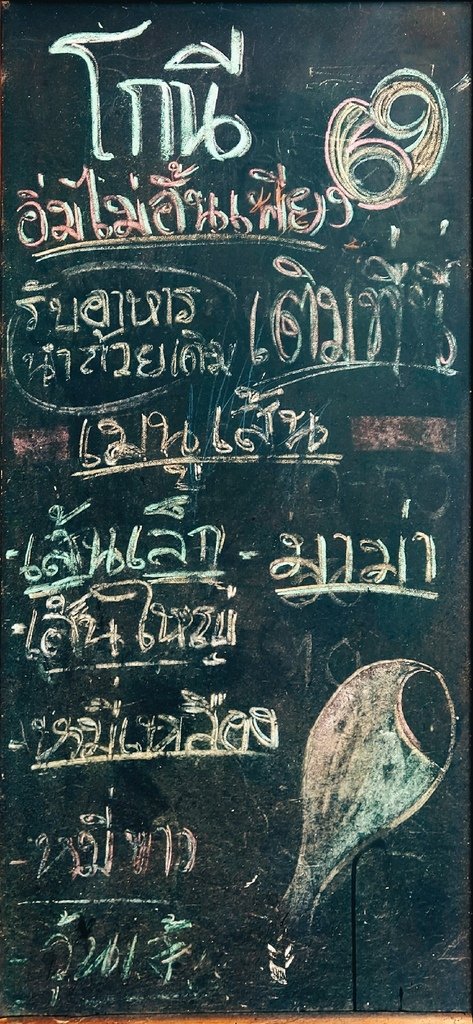 โกนี
69
อิ่มไม่อั้นเพียง
รับอาหาร
นำถ้วยเดิม เติมที่นี่
เมนูเส้น
- เส้นเล็ก - มาม่า
- เส้นใหญ่
- หมี่เหลือง
- หมี่ขาว
- วุ้นเส้น